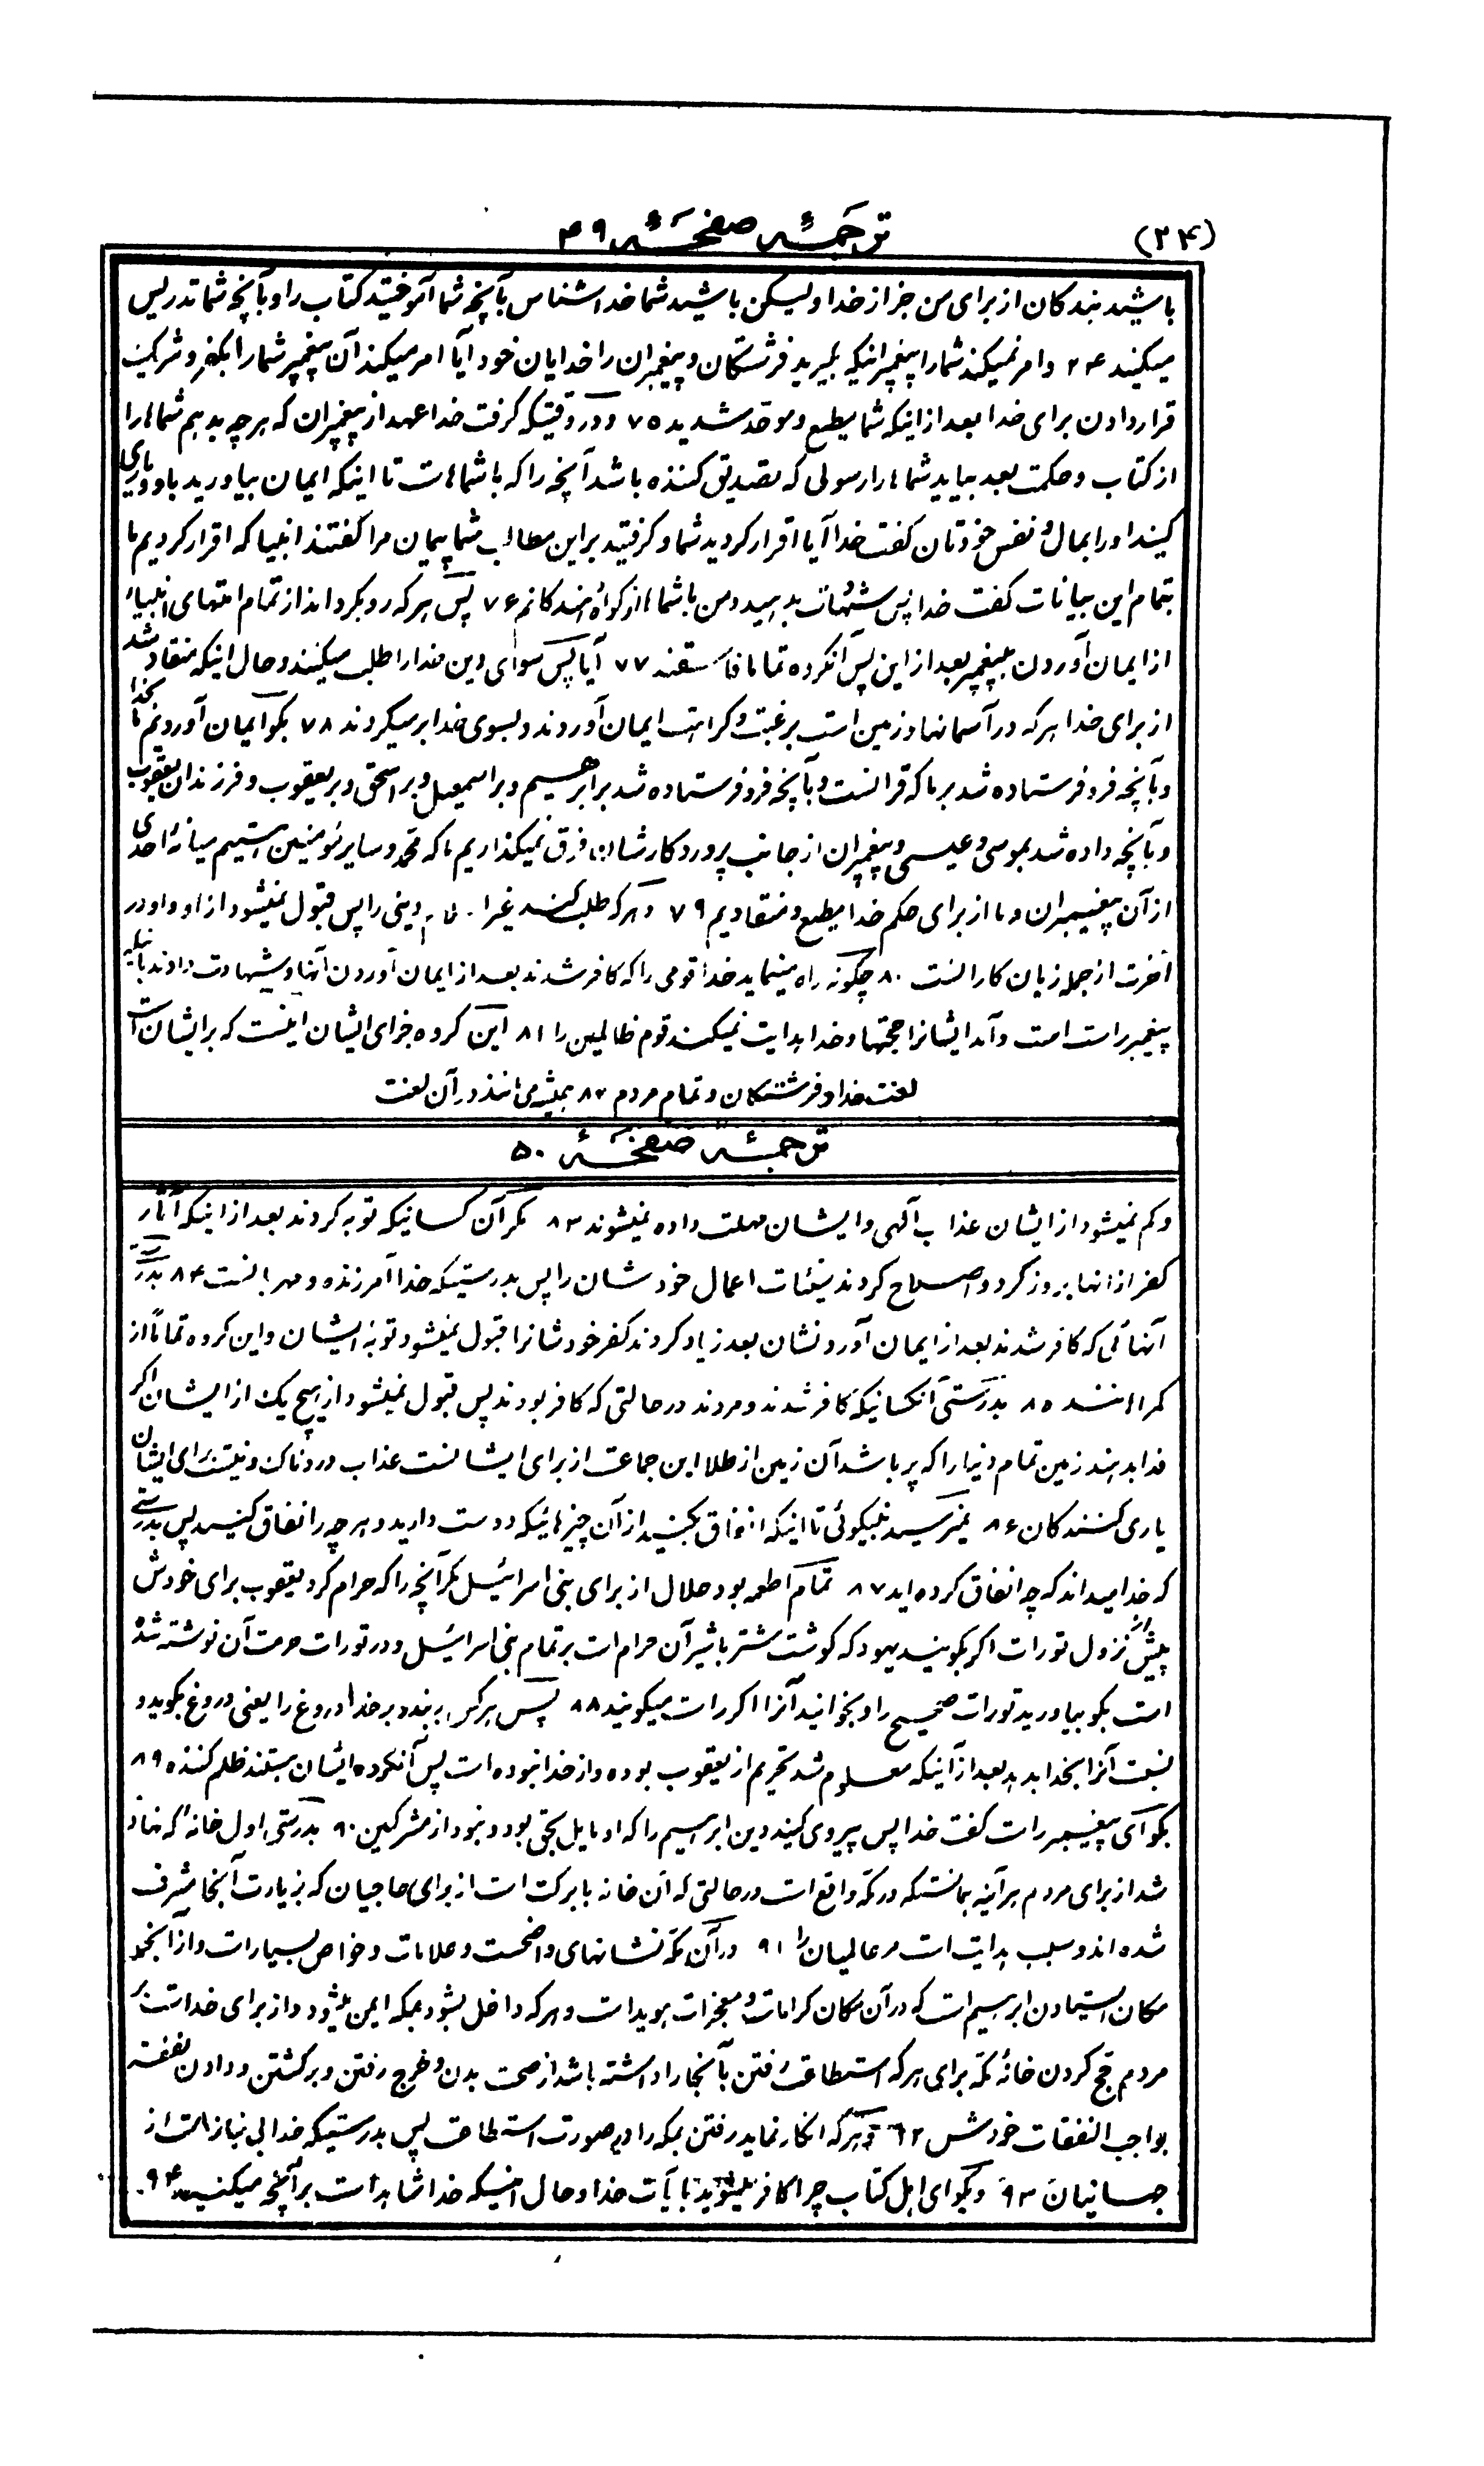 (۲۴)
ترجمهٔ صفحهٔ ۴۹
باشید بندکان از برای من جز از خدا ولیکن باشید شما خداشناس بآنچه شما آموختید کتاب را و بآنچه شما تدریس
میکنید ۷۴ و امر نمیکند شما را پیغمبر اینکه بگیرید فرشتگان و پیغمبران را خدایان خود آیا امر میکند آن پیغمبر شما را بکفر و شریک
قرار دادن برای خدا بعد از اینکه شما مطیع و موحد شدید ۷۵ و در وقتیکه گرفت خدا عهد از پیغمبران که هر چه بدهم شماها را
از کتاب و حکمت بعد بیاید شماها را رسولی که تصدیق کننده باشد آنچه را که با شماهاست تا اینکه ایمان بیاورید باو و یاری
کنید او را بمال و نفس خودتان گفت خدا آیا اقرار کردید شما و گرفتید بر این مطالب شما پیمان مرا گفتند انبیا که اقرار کردیم ما
بتمام این بیانات گفت خدا پس شهادت بدهید و من با شماها از گواهندکانم ۷۶ پس هر که رو بگرداند از تمام امتهای انبیاء
از ایمان آوردن بپیغمبر بعد از این پس آنگروه تماما فاسقند ۷۷ آیا پس سوای دین خدا را طلب میکنند و حال اینکه منقاد شد
از برای خدا هر که در آسمانها و زمین است برغبت و کراهت ایمان آوردند و بسوی خدا برمیگردند ۷۸ بگو ایمان آوردیم ما بخدا
و بآنچه فرو فرستاده شد بر ما که قرانست و بآنچه فرو فرستاده شد بر ابرهیم و بر اسمعیل و بر اسحق و بر یعقوب و فرزندان یعقوب
و بآنچه داده شد بموسی و عیسی و پیغمبران از جانب پروردکارشان فرق نمیگذاریم ما که محمد و سایر مؤمنین هستیم میانهٔ احدی
از آن پیغمبران و ما از برای حکم خدا مطیع و منقادیم ۷۹ و هر که طلب کند غیر دینی را پس قبول نمیشود از او و او در
آخرت از جمله زیان کارانست ۸۰ چگونه راه مینماید خدا قومی را که کافر شدند بعد از ایمان آوردن آنها و شهادت دادند باینکه
پیغمبر راست است و آمد ایشانرا حجتها و خدا هدایت نمیکند قوم ظالمین را ۸۱ این گروه جزای ایشان اینست که بر ایشان است
لعنت خدا و فرشتگان و تمام مردم ۸۲ همیشه می‌مانند در آن لعنت
ترجمهٔ صفحهٔ ۵۰
و کم نمیشود از ایشان عذاب آلهی و ایشان مهلت داده نمیشوند ۸۳ مگر آن کسانیکه توبه کردند بعد از اینکه آثار
کفر از انها بروز کرد و اصلاح کردند سیئات اعمال خودشان را پس بدرستیکه خدا آمرزنده و مهربانست ۸۴ بدرستی
آنهائی که کافر شدند بعد از ایمان آوردنشان بعد زیاد کردند کفر خودشانرا قبول نمیشود توبهٔ ایشان و این گروه تماماً از
گمراهانند ۸۵ بدرستی آنکسانیکه کافر شدند و مردند در حالتی که کافر بودند پس قبول نمیشود از هیچ یک از ایشان اگر
فدا بدهند زمین تمام دنیا را که پر باشد آن زمین از طلا این جماعت از برای ایشانست عذاب دردناک و نیست برای ایشان
یاری کنندکان ۸۶ نمیرسید بنیکوئی تا اینکه انفاق بکنید از آن چیزهائیکه دوست دارید و هر چه را انفاق کنید پس بدرستی
که خدا میداند که چه انفاق کرده‌اید ۸۷ تمام اطعمه بود حلال از برای بنی اسرائیل مگر آنچه را که حرام کرد یعقوب برای خودش
پیش از نزول تورات اگر بگویند یهود که گوشت شتر با شیر آن حرام است بر تمام بنی اسرائیل و در تورات حرمت آن نوشته شده
است بگو بیاورید تورات صحیح را و بخوانید آنرا اگر راست میگوئید ۸۸ پس هر کس به بندد بر خدا دروغ را یعنی دروغ بگوید و
نسبت آنرا بخدا بدهد بعد از آنکه معلوم شد تحریم از یعقوب بوده و از خدا نبوده است پس آنگروه ایشان هستند ظلم کننده ۸۹
بگو ای پیغمبر راست گفت خدا پس پیروی کنید دین ابرهیم را که او مایل بحق بود و نبود از مشرکین ۹۰ بدرستی اول خانهٔ که نهاده
شد از برای مردم هر آینه همانستکه در مکه واقع است در حالتی که آن خانه با برکت است از برای حاجیان که بزیارت آنجا مشرف
شده‌اند و سبب هدایت است مر عالمیان را ۹۱ در آن مکه نشانهای واضحست و علامات و خواص بسیار است و از آنجمله
مکان ایستادن ابرهیم است که در آن مکان کرامات و معجزات هویداست و هر که داخل بشود بمکه ایمن میشود و از برای خداست بر
مردم حج کردن خانهٔ مکه برای هر که استطاعت رفتن بآنجا را داشته باشد از صحت بدن و خرج رفتن و برگشتن و دادن نفقه
بواجب النفقات خودش ۹۲ و هر که انکار نماید رفتن بمکه را در صورت استطاعت پس بدرستیکه خدا بی نیاز است از
جهانیان ۹۳ و بگو ای اهل کتاب چرا کافر میشوید بآیات خدا و حال اینکه خدا شاهد است بر آنچه میکنید ۹۴